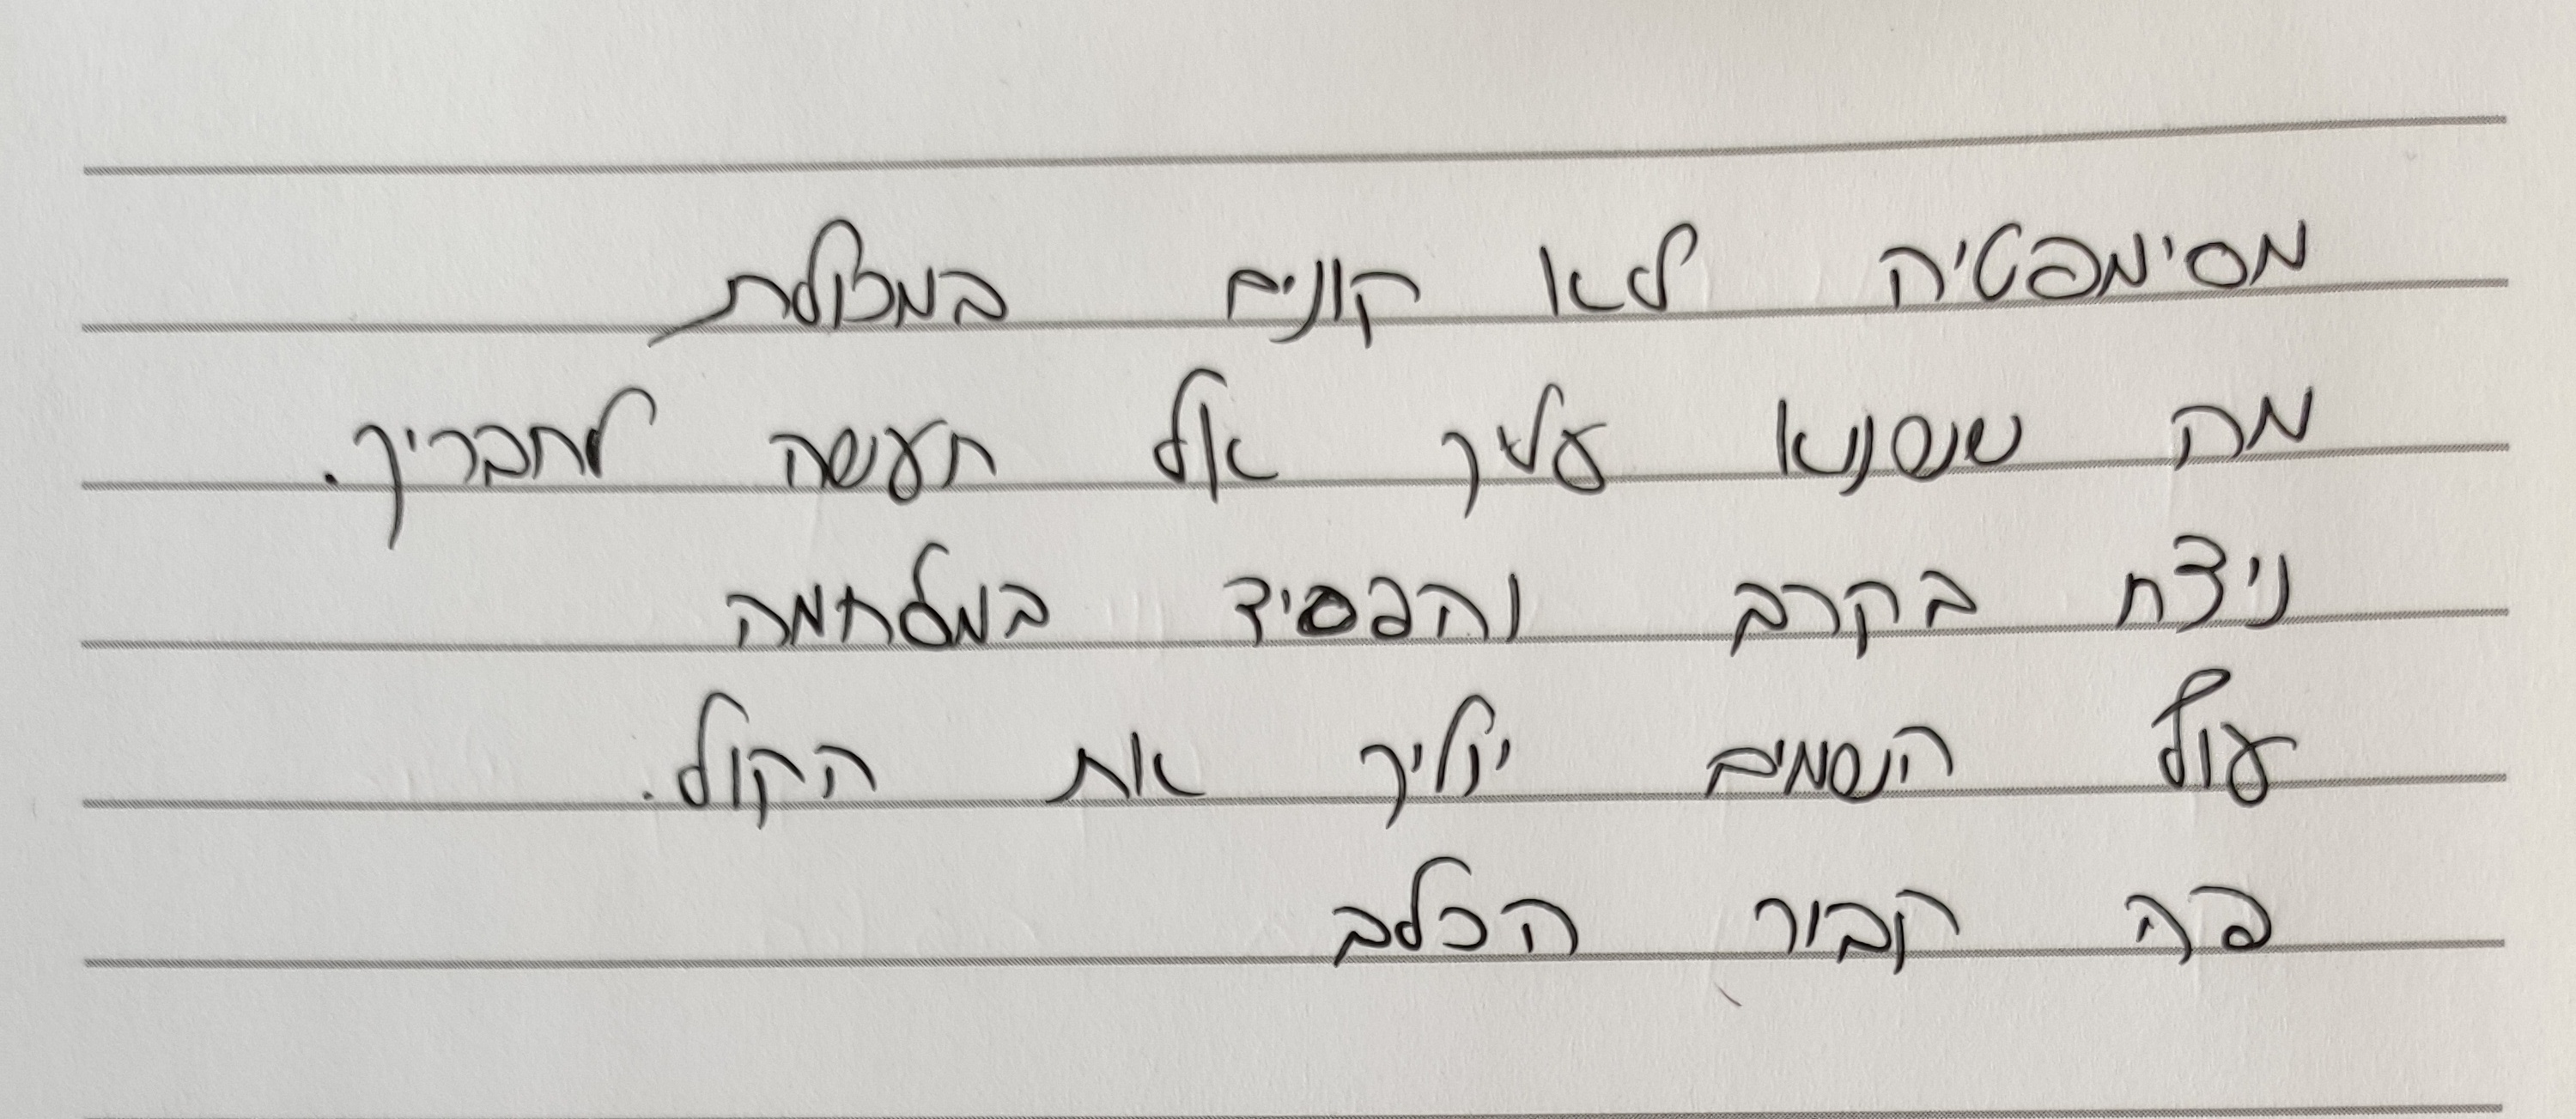 מסימפטיה לא קונים במכולת
מה ששנוא עליך אל תעשה לחבריך.
ניצח בקרב והפסיד במלחמה
עוף השמים יוליך את הקול.
פה קבור הכלב